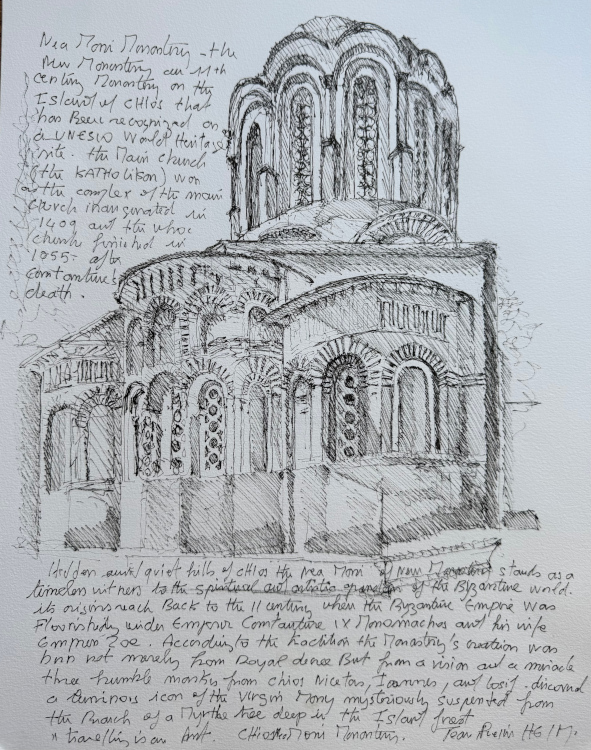 Nea Moni Monastery - the
New Monastery an 11th
century Monastery on the
Island of CHIOS that
has Been recognized as
a UNESCO World Heritage
site. the Main church
(the KATHOLIKON) was
the complex of the main
church inaugurated in
1409 and the whole
church finished in
1055 after
Constantine's
death.
Hidden quiet hills of CHIOS the Nea Moni stands as a
timeless witness to the spiritual and artistic of the Byzantine world.
its origins reach Back to the 11 century when the Byzantine Empire was
Flourishing under Emperor Constantine IX Monomachos and his wife
Empress Zoe. According to the tradition the Monastery's creation was
born not merely from Royal decree But from a vision and a miracle
three humble monks from chios Nicetas, Ioannes, and Iosif. discovered
a luminous icon of the Virgin Mary mysteriously suspended from
the Branch of a Myrtle tree deep in the Island forest
"travelling is an Art. CHIOS Nea Moni Monastery.